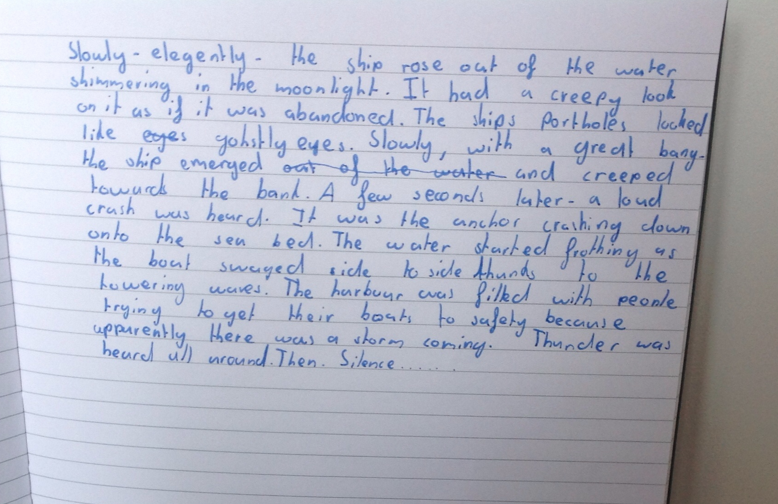 Slowly - elegently - the ship rose out of the water
shimmering in the moonlight. It had a creepy look
on it as if it was abandoned. The ships portholes looked
like eyes gohstly eyes. Slowly, with a great bang.
the ship emerged out of the water and creeped
towards the bank. A few seconds later - a loud
crash was heard. It was the anchor crashing down
onto the sea bed. The water started frothing as
the boat swayed side to side thanks to the
towering waves. The harbour was filled with people
trying to get their boats to safety because
apparently there was a storm coming. Thunder was
heard all around. Then. Silence......